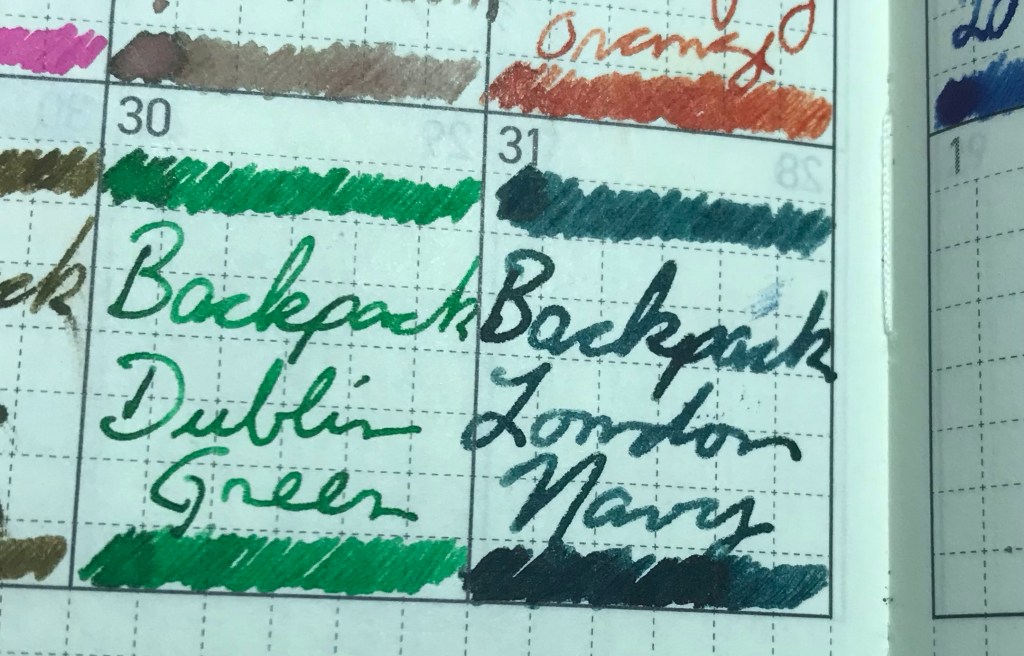 Orange
30
31
1
ck
Backpack
Dublin
Green
Backpack
London
Navy